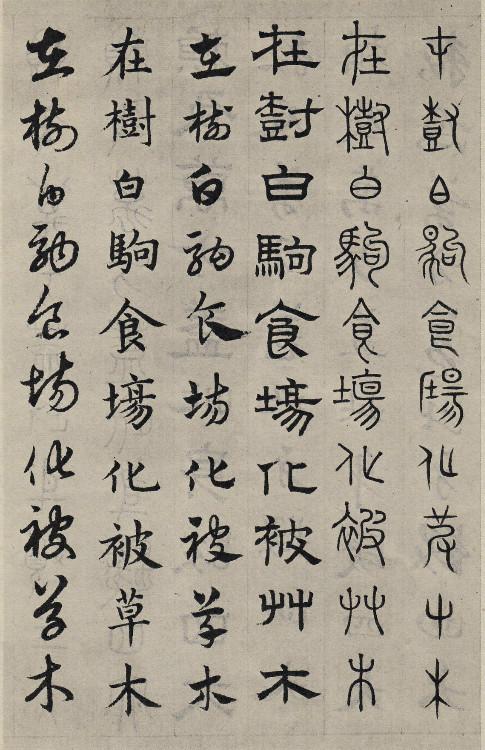 在樹白駒食場化被草木
在樹白駒食場化被艸木
在樹白駒食場化被艸木
在樹白駒食場化被草木
在樹白駒食場化被草木
在樹白駒食場化被草木